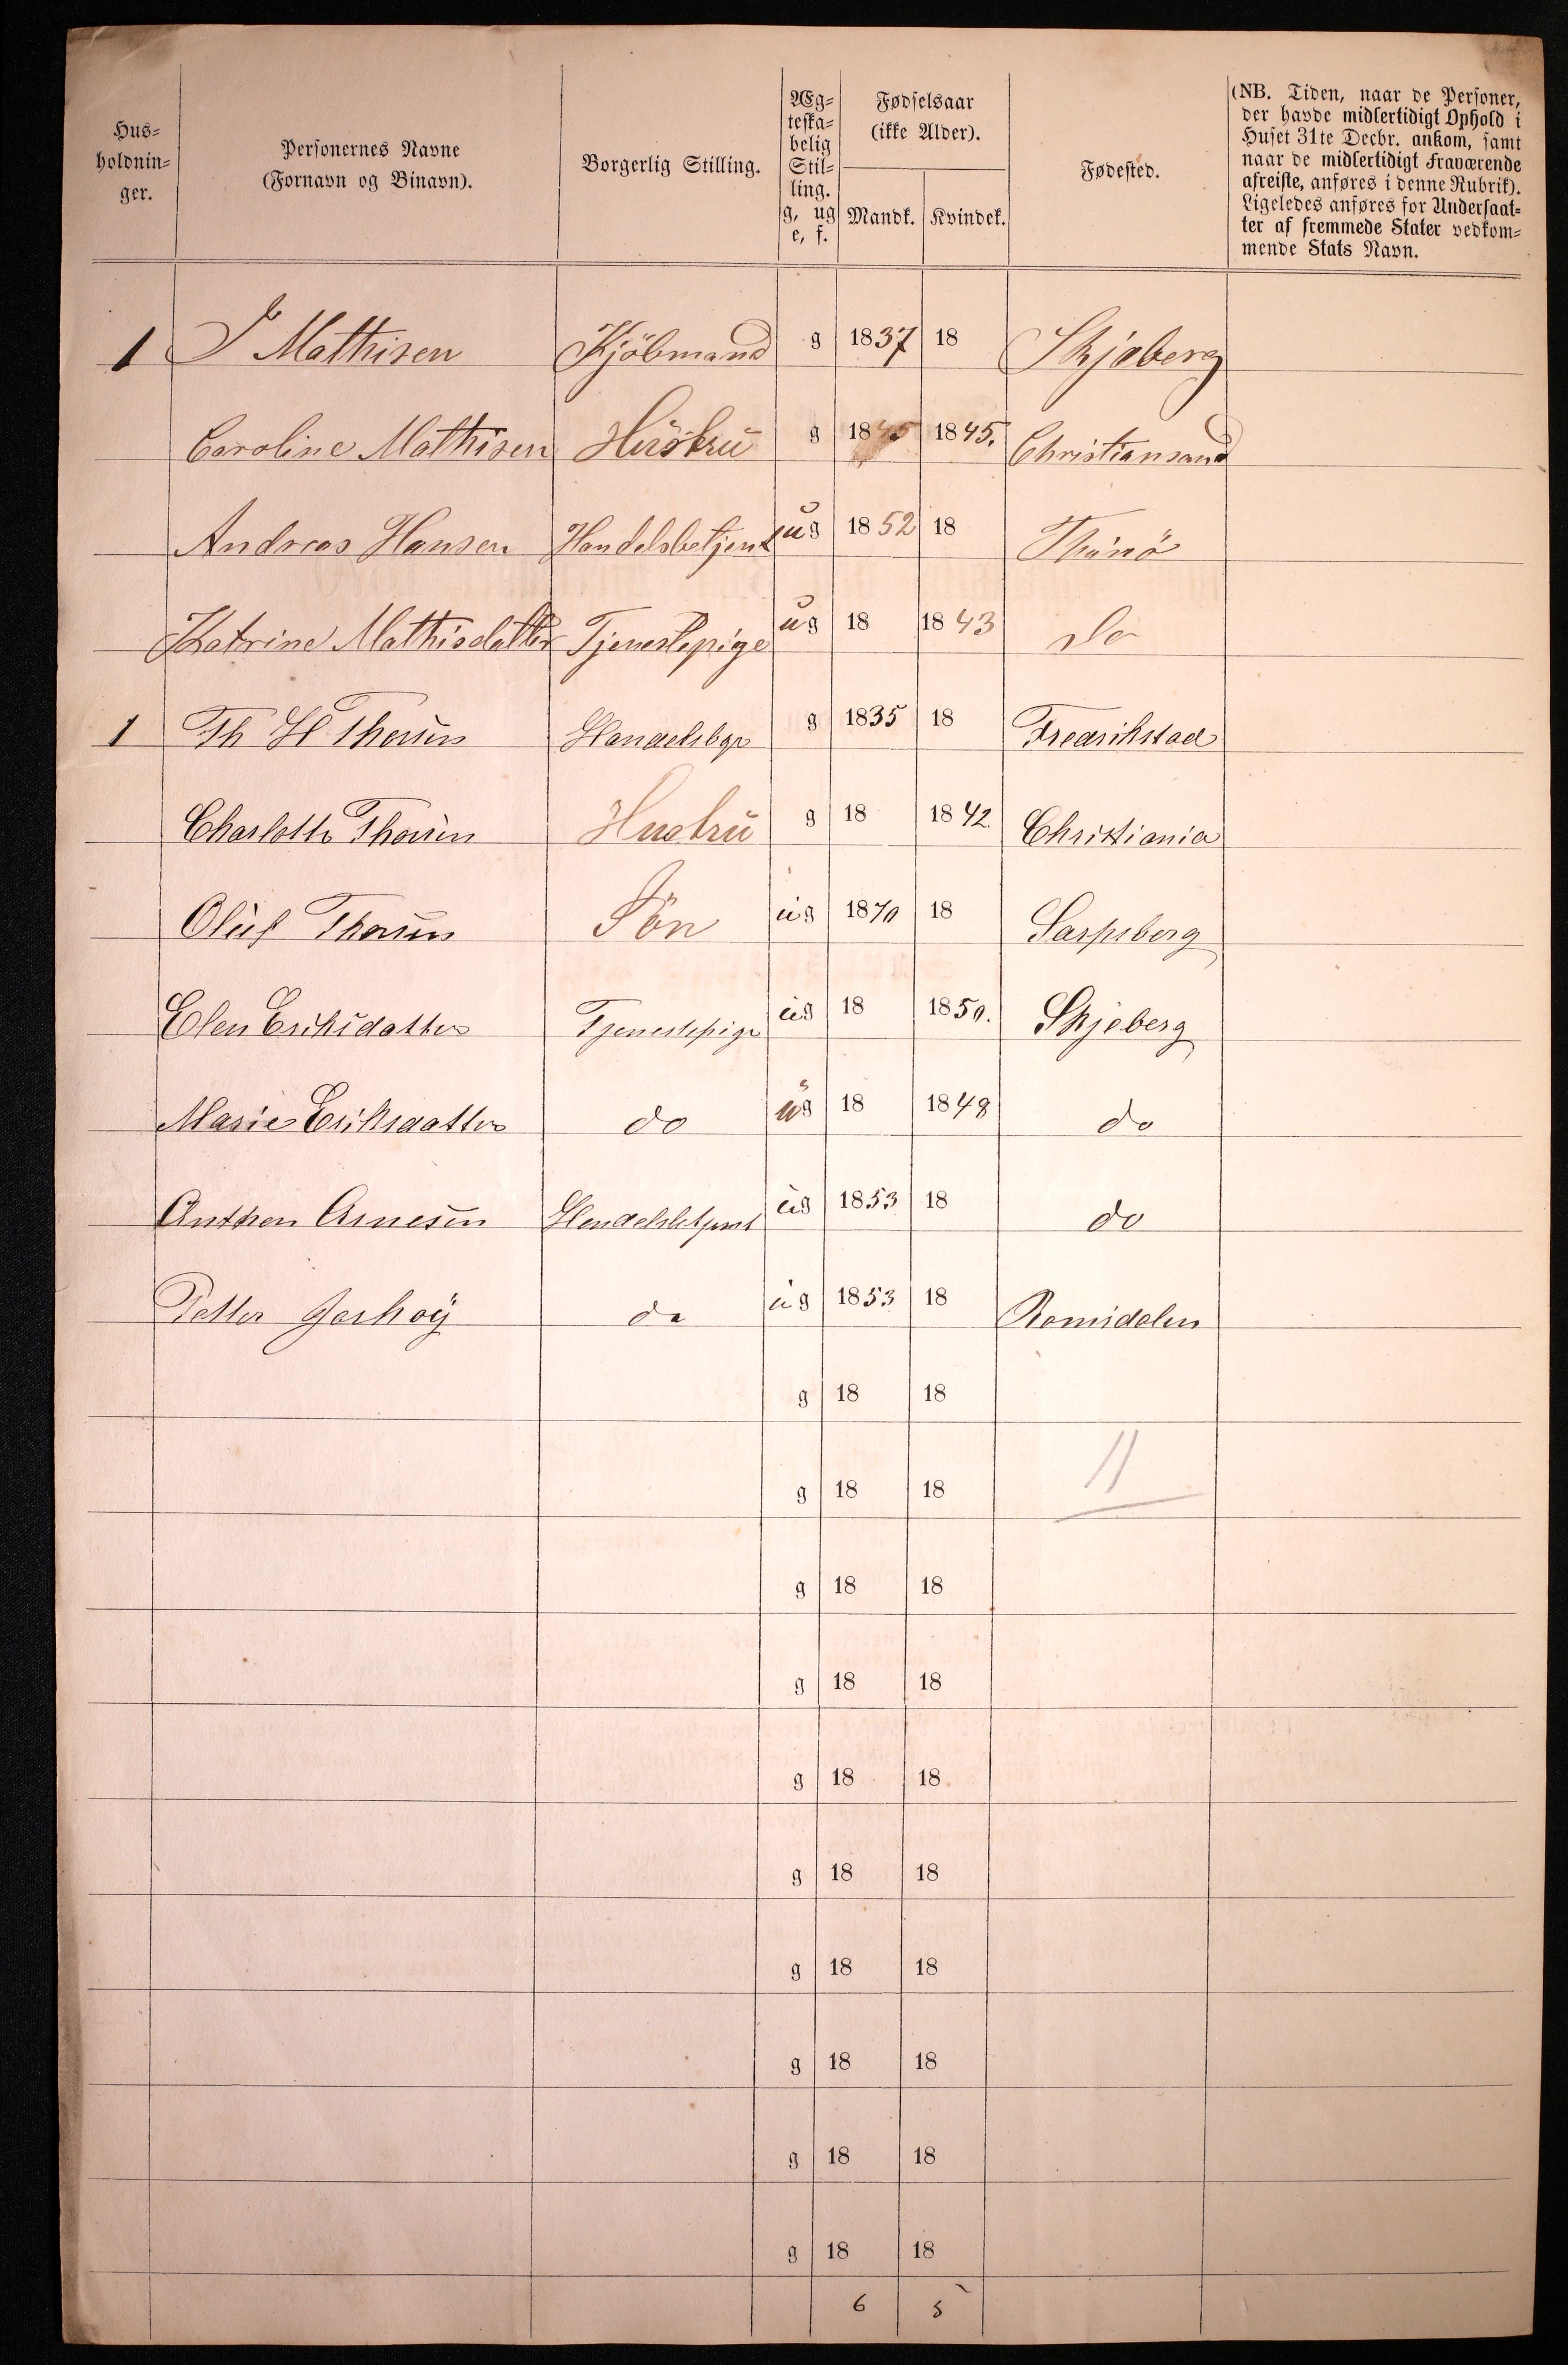 Hus=
holdnin=
ger.
Personernes Navne
(Fornavn og Binavn).
Borgerlig Stilling.
Æg=
teska=
belig
Stil=
ling.
g, ug
e, f.
Fødselsaar
(ikke Alder).
Mandk. Kvindek.
Fødested.
(NB. Tiden, naar de Personer,
der havde midlertidigt Ophold i
Huset 31te Decbr. ankom, samt
naar de midlertidigt Fraværende
afreiste, anføres i denne Rubrik).
Ligeledes anføres for Undersaat=
ter af fremmede Stater vedkom=
mende Stats Navn.
1 J Mathisen Kjöbmand g 1837 18 Skjeberg
Caroline Mathisen Hustru g 1845 1845. Christiansand
Andreas Hansen Handelsbetjent ug 1852 18 Thunö
Katrine Mathisdatter Tjenestepige ug 18 1843 Do
1 Th H Thorsen Handelsbgr g 1835 18 Fredrikstad
Charlotte Thorsen Hustru g 18 1842. Christiania
Oluf Thorsen Sön ug 1870 18 Sarpsborg
Elen Eriksdatter Tjenestepige ug 18 1850. Skjeberg
Marie Eriksdatter do ug 18 1848 do
Anthon Arnesen Handelsbetjent ug 1853 18 do
Petter do ug 1853 18 Romsdalen
g 18 18
g 18 18 11
g 18 18
g 18 18
g 18 18
g 18 18
g 18 18
g 18 18
g 18 18
g 18 18
6 5